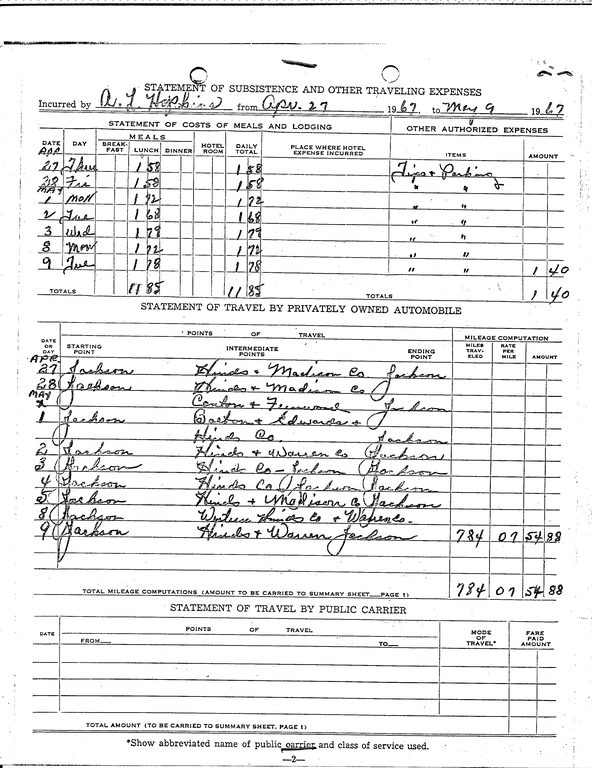 STATEMENT OF SUBSISTENCE AND OTHER TRAVELING EXPENSES
Incurred by A. L. Hopkins from Apr. 27 1967, to May 9 1967
STATEMENT OF COSTS OF MEALS AND LODGING OTHER AUTHORIZED EXPENSES
DATE DAY MEALS HOTEL ROOM DAILY TOTAL PLACE WHERE HOTEL EXPENSE INCURRED ITEMS AMOUNT
APR BREAK-FAST LUNCH DINNER
27 Thur 1 58 1 58 Tips & Parking
28 Fri 1 58 1 58 " "
MAY
1 Mon 1 72 1 72 " "
2 Tue 1 68 1 68 " "
3 Wed 1 79 1 79 " "
8 Mon 1 72 1 72 " "
9 Tue 1 78 1 78 " " 1 40
TOTALS 11 85 11 85 TOTALS 1 40
STATEMENT OF TRAVEL BY PRIVATELY OWNED AUTOMOBILE
DATE OR DAY POINTS OF TRAVEL MILEAGE COMPUTATION
STARTING POINT INTERMEDIATE POINTS ENDING POINT MILES TRAV-ELED RATE PER MILE AMOUNT
APR
27 Jackson Hinds & Madison Co. Jackson
28 Jackson Hinds & Madison Co
MAY Canton & Jackson
1 Jackson Bolton & Edwards &
Hinds Co. Jackson
2 Jackson Hinds & Warren Co Jackson
3 Jackson Hinds Co - Jackson Jackson
4 Jackson Hinds Co Jackson Jackson
5 Jackson Hinds & Madison Co Jackson
8 Jackson Western Hinds Co & Warren Co.
9 Jackson Hinds & Warren Jackson 784 07 54 88
TOTAL MILEAGE COMPUTATIONS (AMOUNT TO BE CARRIED TO SUMMARY SHEET—PAGE 1) 784 07 54 88
STATEMENT OF TRAVEL BY PUBLIC CARRIER
DATE POINTS OF TRAVEL MODE OF TRAVEL* FARE PAID AMOUNT
FROM TO
TOTAL AMOUNT (TO BE CARRIED TO SUMMARY SHEET, PAGE 1)
*Show abbreviated name of public carrier and class of service used.
—2—